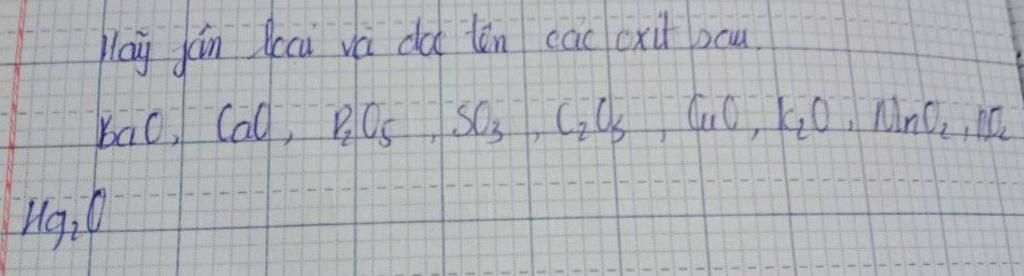 Hãy phân loại và đọc tên các oxit sau
BaO, CaO, P₂O₅, SO₃, C₂O₅, CuO, K₂O, MnO₂, NO₂
Hg₂O